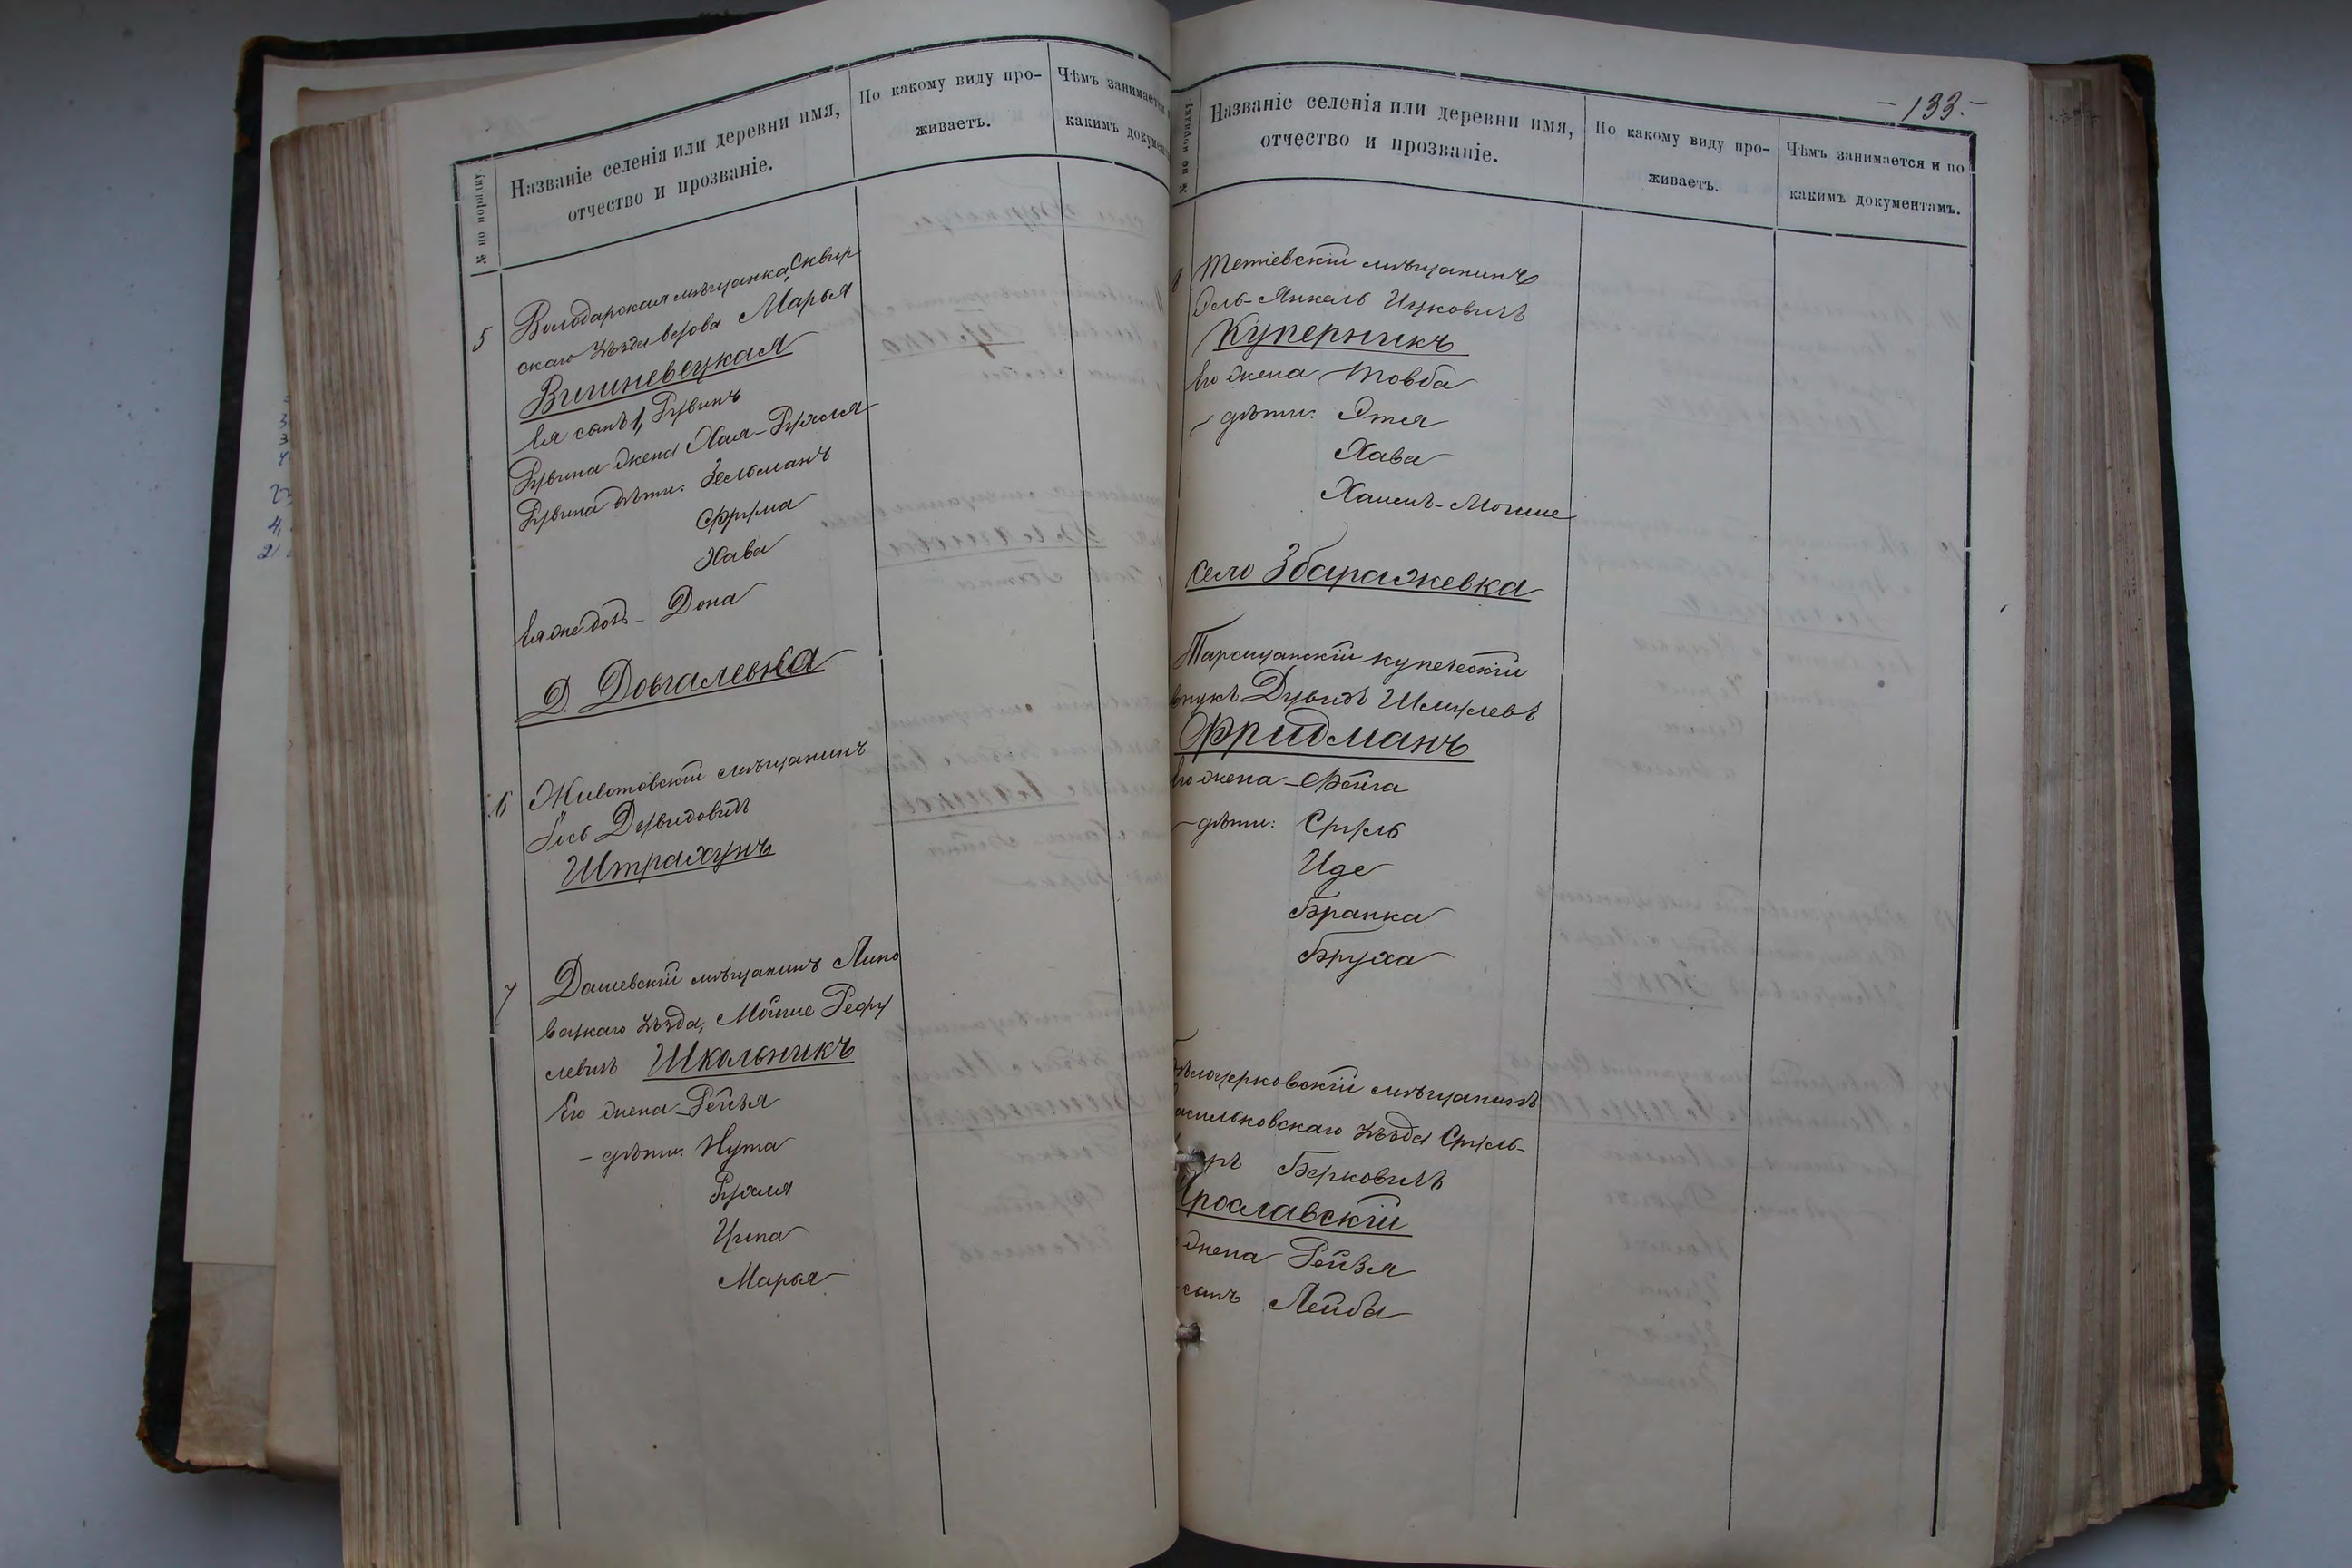 № по порядку.
Названіе селенія или деревни имя,
отчество и прозваніе.
По какому виду про-
живаетъ.
Чѣмъ занимается
какимъ докумен
5
Володарская мѣщанка, Сквир
скаго уѣзда вдова Марья
Вишневецкая
Ея сынъ 1, Рувинъ
Рувина жена Хая-Рухля
Рувина дѣти: Зельманъ
Фрума
Хава
Ея же дочь - Дона
Д. Довгалевка
6
Животовскій мѣщанинъ
Іось Дувидовичъ
Штрахунъ
7
Дашевскій мѣщанинъ Липо
вецкаго уѣзда, Мойше Рефу
левичъ Школьникъ
Его жена - Рейзя
- дѣти: Нута
Рухля
Ципа
Марья
- 133 -
№ по порядку.
Названіе селенія или деревни имя,
отчество и прозваніе.
По какому виду про-
живаетъ.
Чѣмъ занимается и по
какимъ документамъ.
8
Тетіевскій мѣщанинъ
Эль-Янкель Ицковичъ
Куперникъ
Его жена Товба
- дѣти: Этя
Хава
Хаимъ-Мошше
село Збаражевка
Таращанскій купеческій
внукъ Дувидъ Шмулевъ
Фридманъ
Его жена - Фейга
- дѣти: Сруль
Иде
Бранка
Бруха
Бѣлоцерковскій мѣщанинъ
асильковскаго уѣзда Сруль-
ръ Берковичъ
Ярославскій
жена Рейзя
- сынъ Лейба